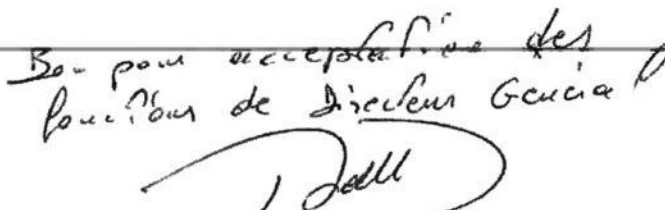 Bon pour acceptation des
fonctions de Directeur Général